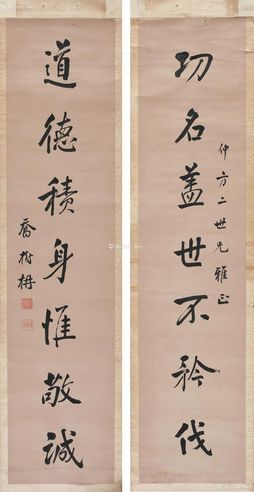 功名蓋世不矜伐
仲方二世兄雅正
道德積身惟敬誠
喬樹枏